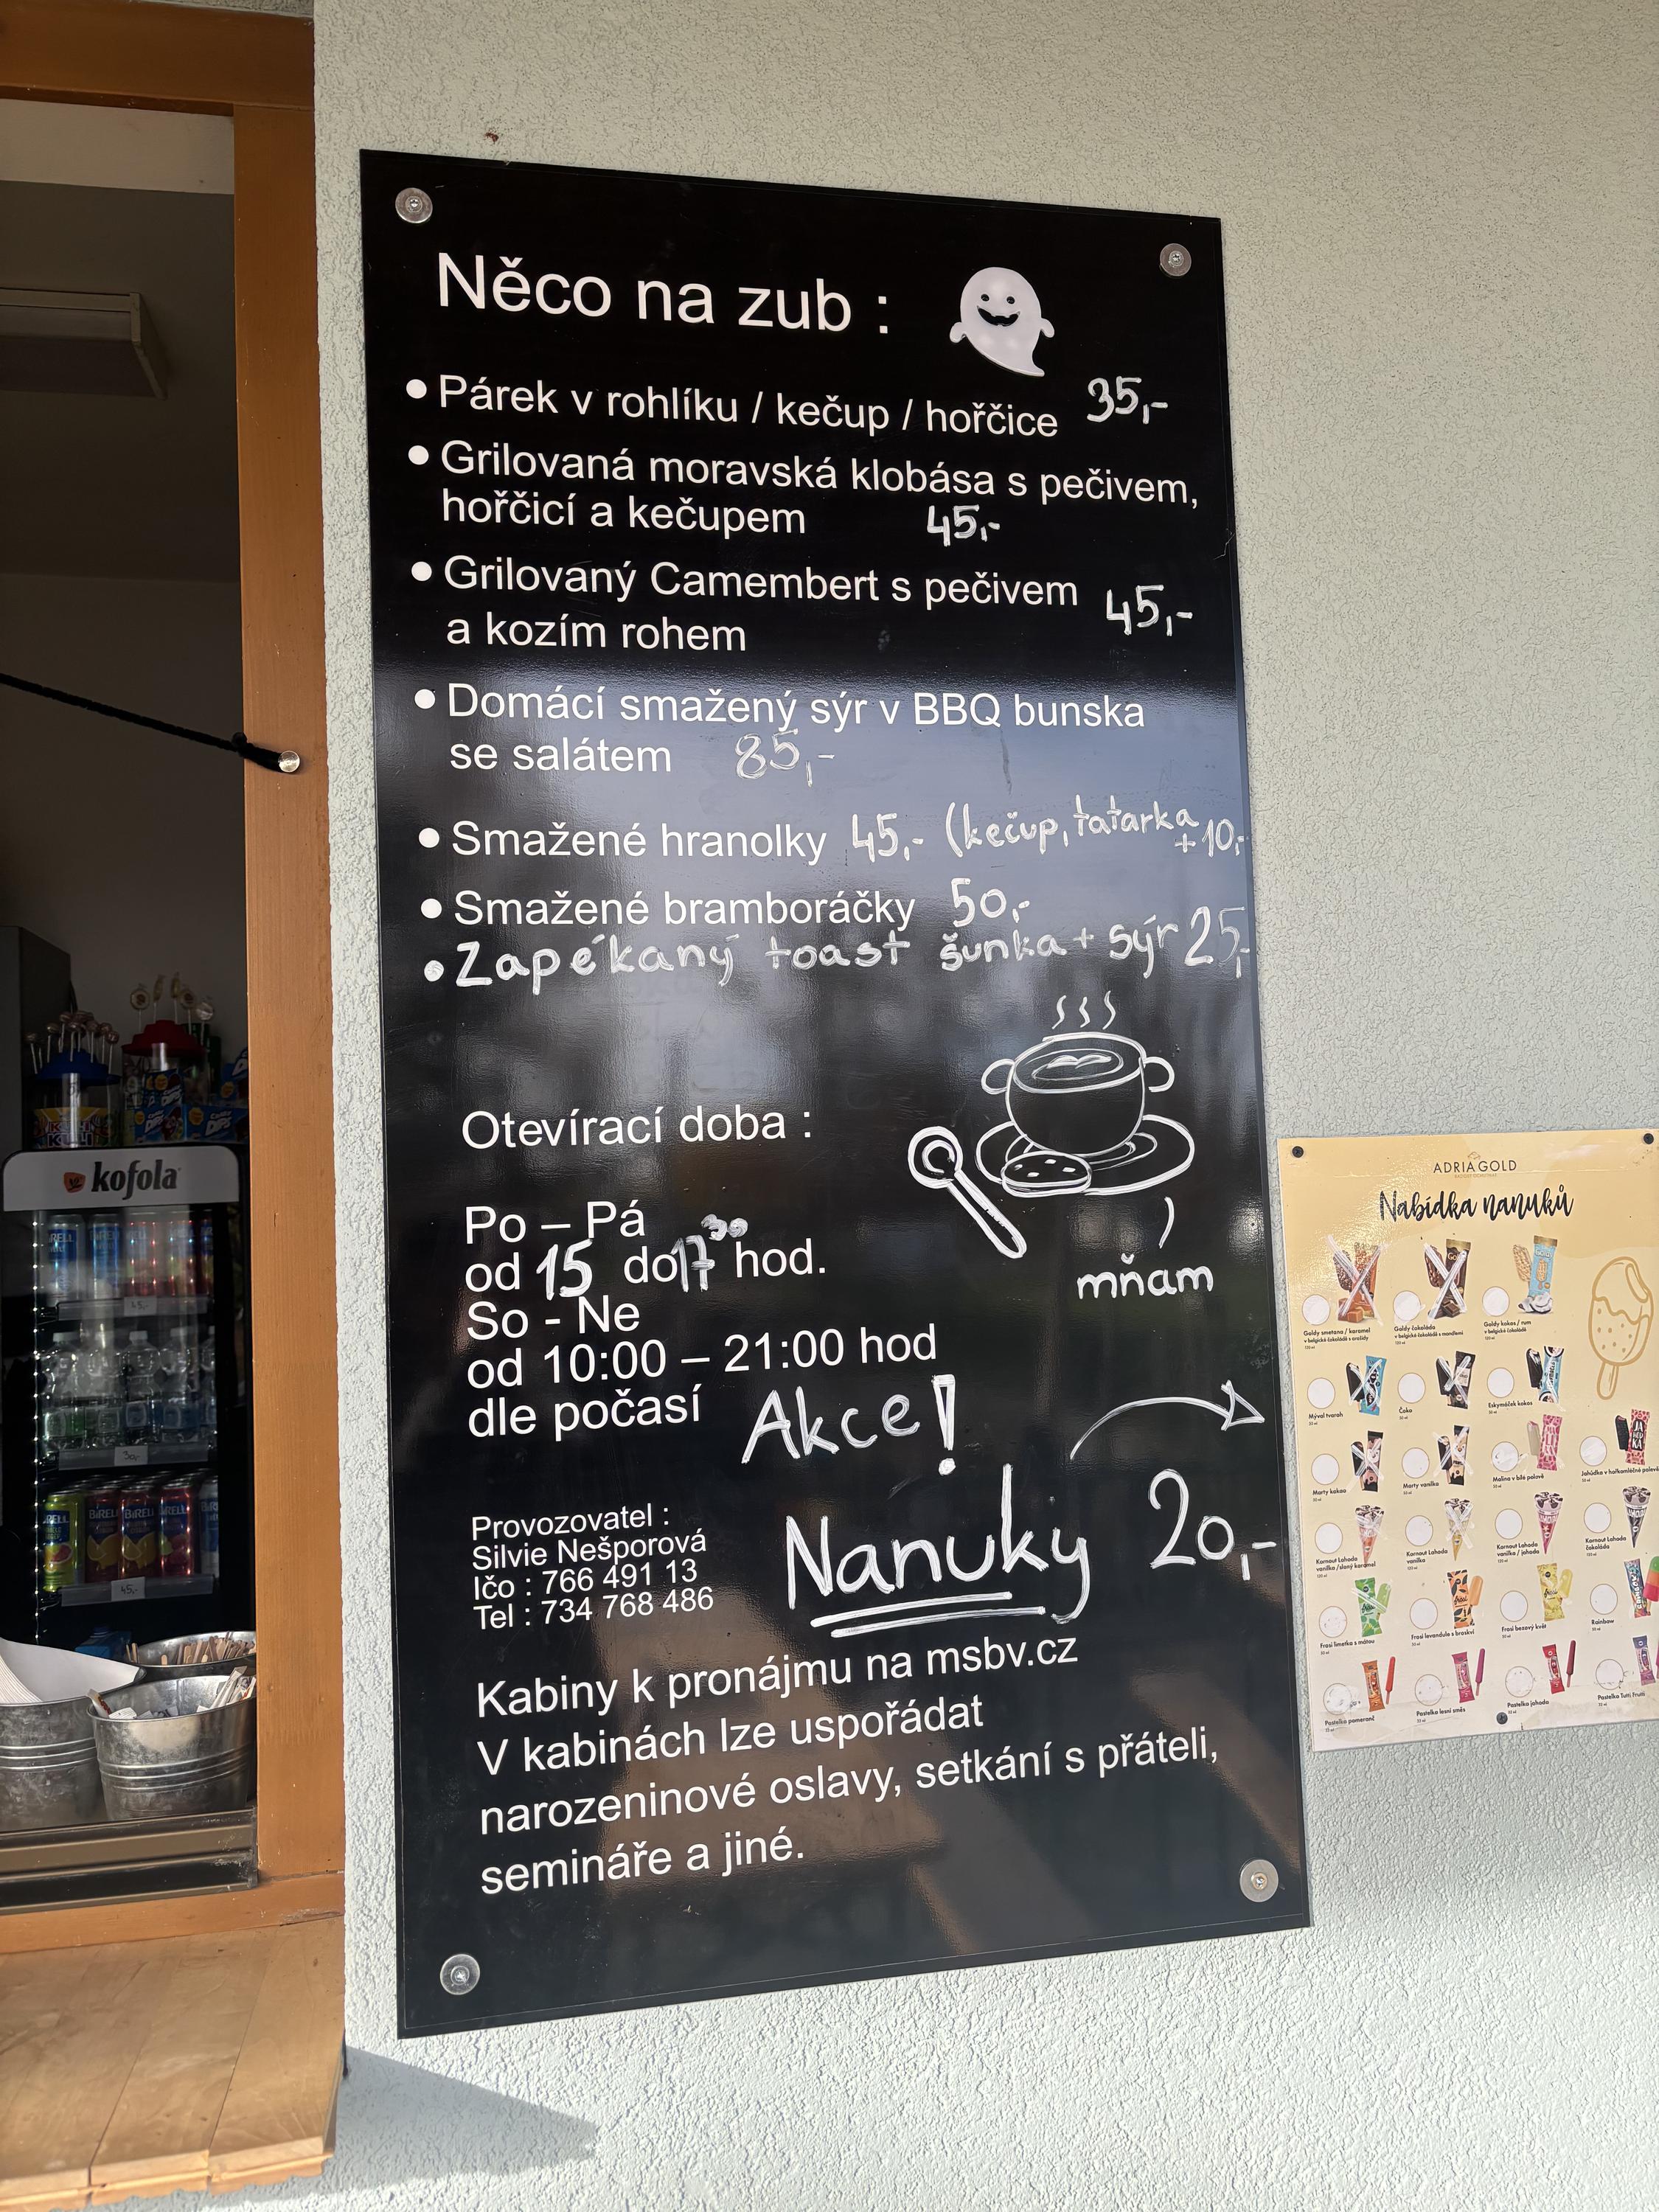 Něco na zub :
• Párek v rohlíku / kečup / hořčice 35,-
• Grilovaná moravská klobása s pečivem,
hořčicí a kečupem 45,-
• Grilovaný Camembert s pečivem 45,-
a kozím rohem
• Domácí smažený sýr v BBQ bunska
se salátem 85,-
• Smažené hranolky 45,- (kečup, tatarka
+10,-
• Smažené bramboráčky 50,-
• Zapékaný toast šunka + sýr 25,-
Otevírací doba :
Po – Pá
od 15 do 17³⁰ hod.
So - Ne
od 10:00 – 21:00 hod
dle počasí
mňam
Akce!
Nanuky 20,-
Provozovatel :
Silvie Nešporová
Ičo : 766 491 13
Tel : 734 768 486
Kabiny k pronájmu na msbv.cz
V kabinách lze uspořádat
narozeninové oslavy, setkání s přáteli,
semináře a jiné.
kofola
45,-
30,-
BIRELL
45,-
ADRIA GOLD
Nabídka nanuků
Goldy smetana / karamel
v belgické čokoládě s arašídy
Goldy čokoláda
v belgické čokoládě s mandlemi
Goldy kokos / rum
v belgické čokoládě
Mýval tvaroh
Čoko
Eskymáček kokos
Marty kakao
Marty vanilka
Malina v bílé polevě
Jahůdka v hořkomléčné polevě
Kornout Lahoda
vanilka / slaný karamel
Kornout Lahoda
vanilka
Kornout Lahoda
vanilka / jahoda
Kornout Lahoda
čokoláda
Frosi limetka s mátou
Frosi levandule s broskví
Frosi bezový květ
Rainbow
Pastelka pomeranč
Pastelka lesní směs
Pastelka jahoda
Pastelka Tutti Frutti